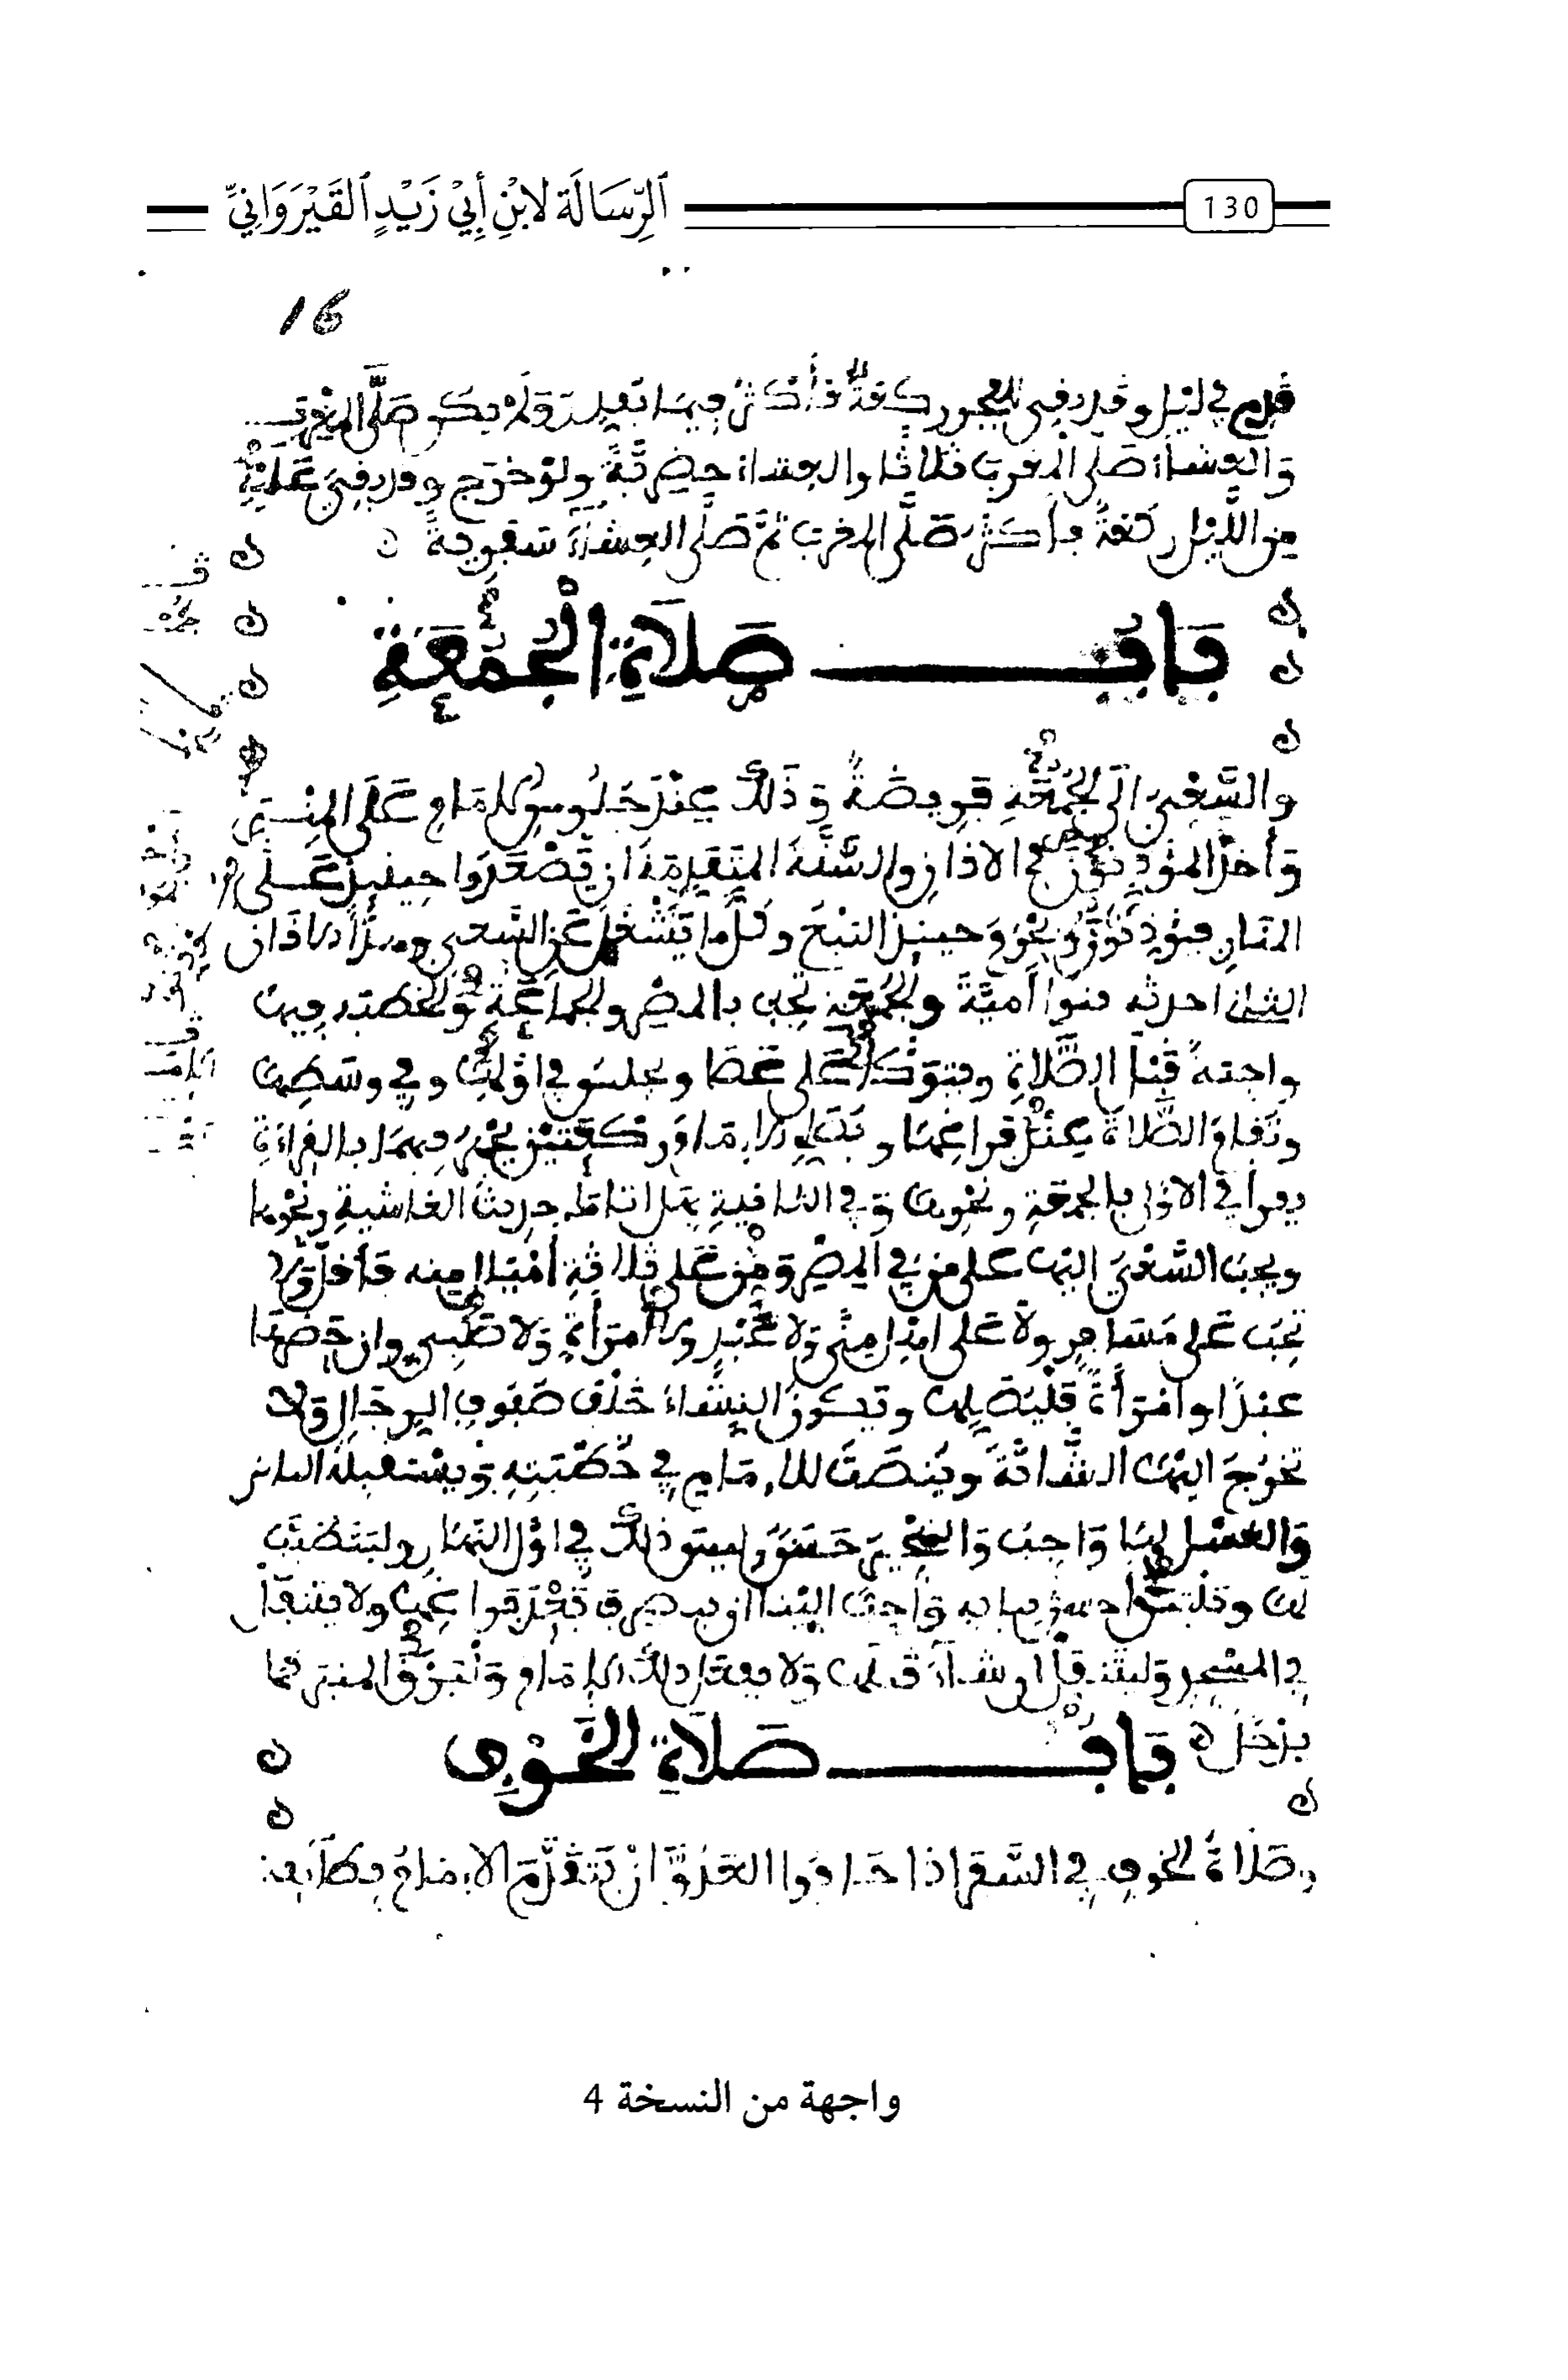 الرِّسَالَة لابْنِ أَبِيْ زَيْدٍ القَيْرَوَانِيِّ
130
16
قدم في ليل وقد بقي للفجر ركعة فأكثر فيما يقدر ولم يكن صلى المغرب
والعشاء صلى المغرب ثلاثا والعشاء حضرية ولو خرج وقد بقي عليه
من الليل ركعة فأكثر صلى المغرب ثم صلى العشاء سفرية
باب صَلَاةِ الْجُمُعَةِ
والسَّعْيُ الى الجُمُعَةِ فَرِيضَةٌ وَذَلك عِنْدَ جُلُوسِ الامَامِ عَلَى المِنْبَرِ
وَأخذ المُؤذنون في الاذان والسُّنَّة المتقدمة ان يَصْعَدُوا حينئذ عَلى
المنار فيؤذنون ويحرم حينئذ البَيْعُ وكلّ ما يَشْغَل عَن السَّعي وهذا الاذان
الثاني احدثه بنوا أميَّة والجُمُعَة تجب بالمصر والجماعَةِ والخطبة فيها
واجبة قَبْل الصَّلاةِ ويتوَكأ عَلى عَصَا ويجلس في اوّلها وفي وسَطها
وتقام الصَّلاة عِنْدَ فراغها ويصلي الامَام ركعَتَيْن يجْهر فيهمَا بالقراءَةِ
يقرأ في الاولى بالجمعَةِ ونحْوها وفي الثانيةِ بهل اتاك حديث الغاشيةِ ونحْوها
ويجبُ السَّعْيُ اليها على من في المِصْر ومن عَلى ثلاثةِ أمْيَال منه فأقل ولا
تجبُ عَلى مسَافِر ولا عَلى اهل مِنًى ولا عَبْدٍ ولا امْرأةٍ ولا صَبي وان حَضرها
عبدٌ او امْرَأةٌ فَلْيُصَلها وتكون النِّسَاءُ خَلْف صُفوفِ الرجَالِ ولا
تخرُجُ اليها الشَّابَّةُ ويُنصَتُ للامَامِ في خُطْبَتِهِ ويسْتقبله الناس
وَالغسْل لها وَاجبٌ وَالتهْجير حَسَنٌ وليس ذلك في اوّل النَّهَار وليتطيَّب
لها ويلبس احسن ثيابه وَاحبّ الينا ان ينصرف بَعْدَ فراغها ولا يتنفَّل
في المسْجد وليتنفل ان شاء قبلها ولا يفعل ذلك الامَام وَلْيَرْقَ المنبر كما
يدخل
باب صَلَاةِ الخَوْفِ
وصَلاةُ الخوف في السَّفر اذا خافوا العَدُوَّ انْ يَتَقدَّمَ الامَامُ بطائفة
واجهة من النسخة 4